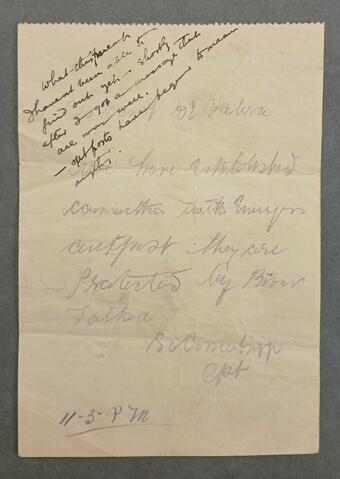 What this meant
I havent been able to
find out yet - Shortly
after I got a message that
all was well.
- outposts have begun to mean
De Valera
We have established
connection with Enemys
outpost they are
Protected by River
Tolka
Capt
11-5-PM